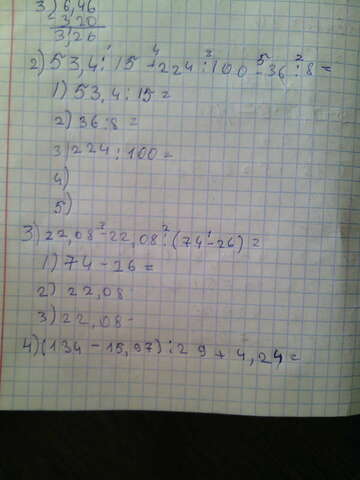 3) 6,46
- 3,20
3,26
2) 53,4 : 15 + 224 : 100 - 36 : 8 =
1) 53,4 : 15 =
2) 36 : 8 =
3) 224 : 100 =
4)
5)
3) 22,08 - 22,08 : (74 - 26) =
1) 74 - 26 =
2) 22,08
3) 22,08 -
4) (134 - 15,97) : 29 + 4,24 =